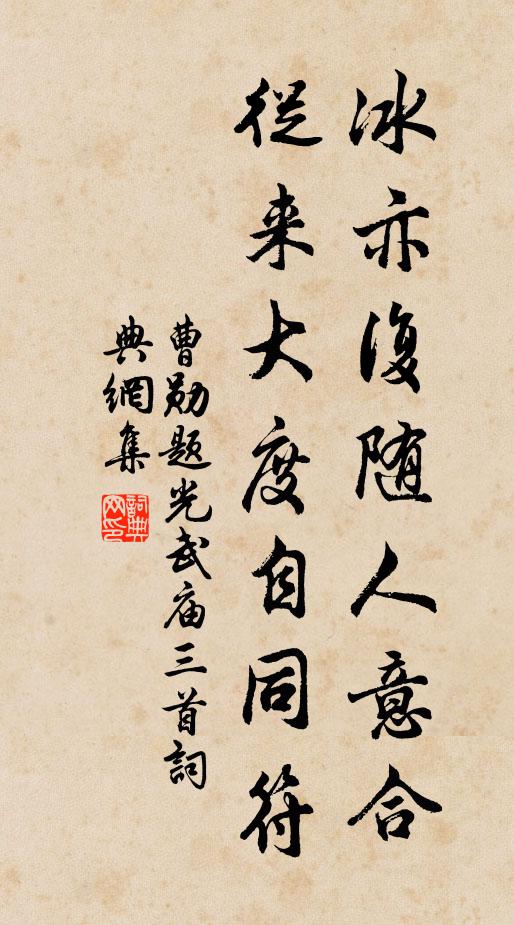 冰亦復随人意合
從来大度自同符
曹勛題光武庙三首詞
典網集
詞典
网印